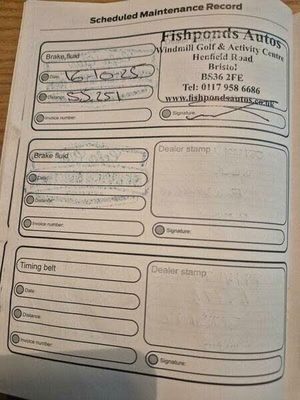 Scheduled Maintenance Record
Fishponds Autos
Windmill Golf & Activity Centre
Henfield Road
Bristol
BS36 2FE
Tel: 0117 958 6686
www.fishpondsautos.co.uk
Signature:
Brake fluid
Date: 16-10-25
Distance: 55251
Invoice number:
Brake fluid
Date:
Distance:
Invoice number:
Dealer stamp
Signature:
Timing belt
Date:
Distance:
Invoice number:
Dealer stamp
Signature: